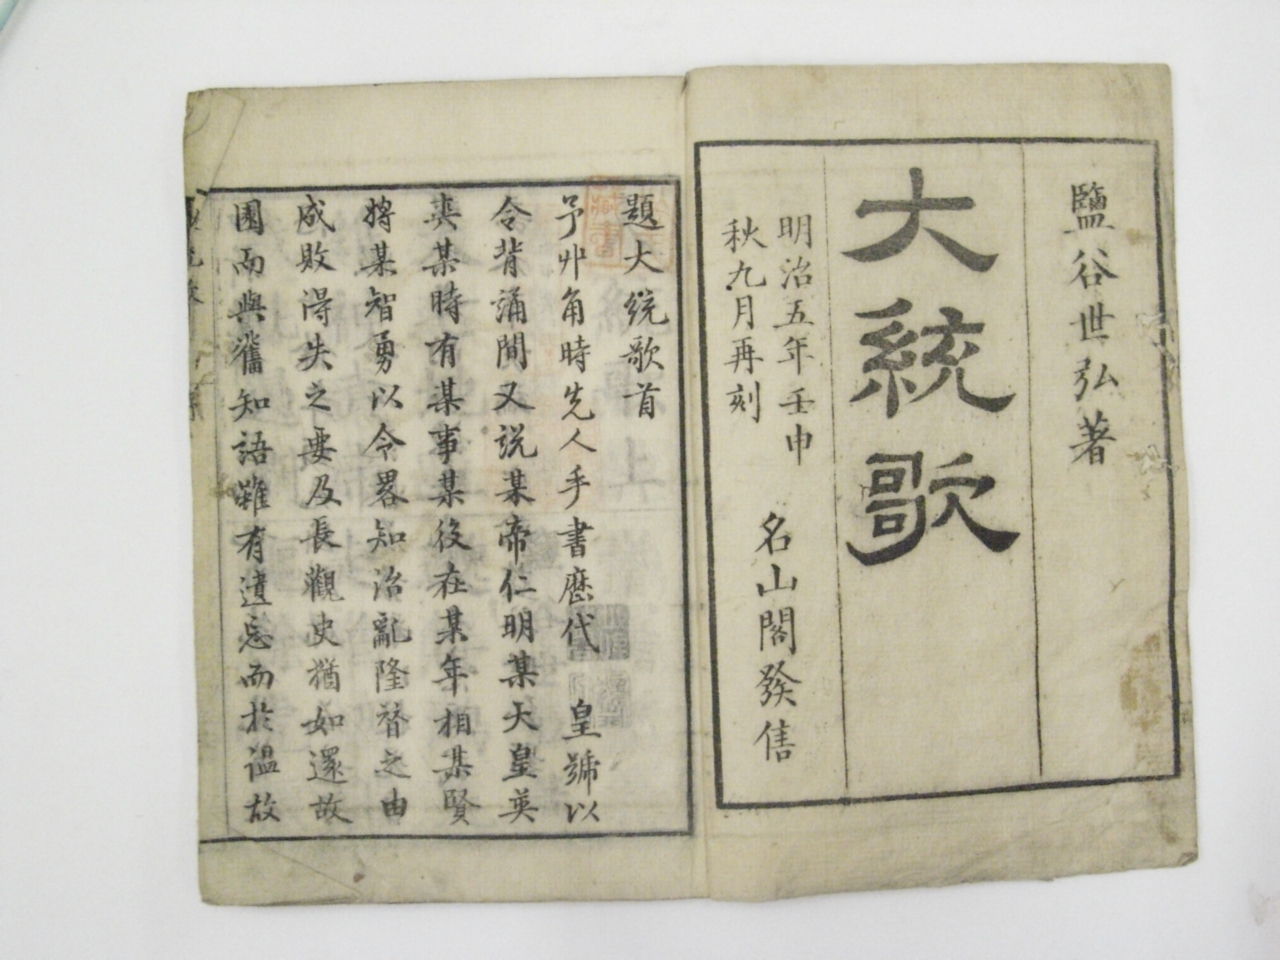 鹽谷世弘著
大統歌
明治五年壬申
秋九月再刻
名山閣發售
題大統歌首
予丱角時先人手書歷代 皇號以
令背誦間又説某帝仁明某天皇英
爽某時有某事某後在某年相某賢
將某智勇以令畧知治亂隆替之由
成敗得失之要及長觀史猶如還故
園而與舊知語雖有遺忘而於溫故
藏書